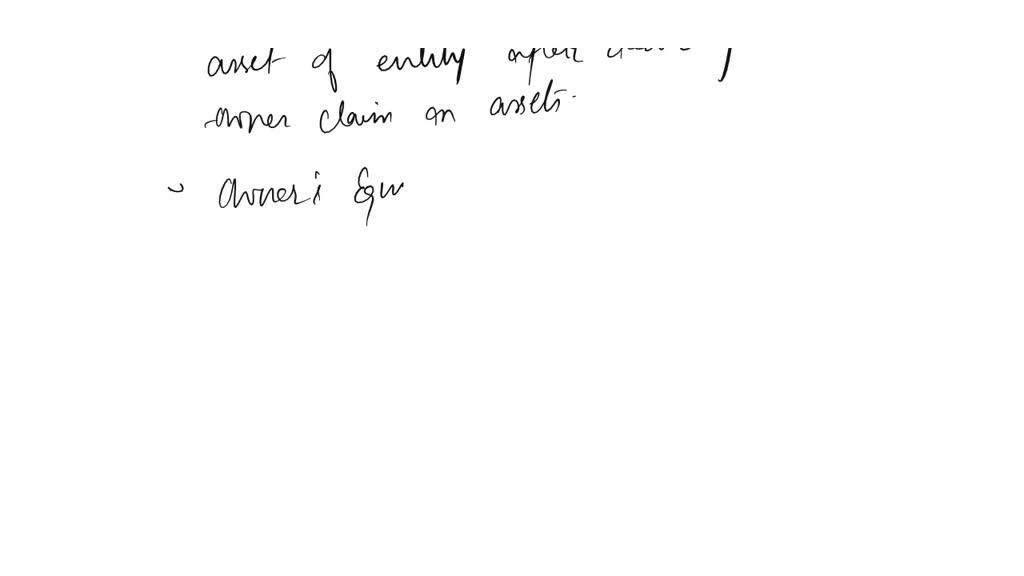 asset of entity after
owner claim on assets.
Owner's Equ